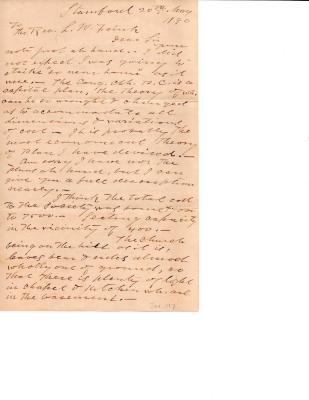 Stamford 20th May
1890
The Rev. L. W.
Dear Sir
Your
note just at hand. I did
not expect I was going to
strike so near home as it
was. The Cong. Ch. is a
capital plan, the theory of wh.
can be wrought & changed
as to accommodate all
dimensions & variations
of cost. It is probably the
most economical theory
of Plan I have devised.
Am sorry I have not the
plans at hand, but I can
give you a full description
nearly.
I think the total cost
to the Society was
to 7500. Seating capacity
in the vicinity of 400.
The Church
being on the hill as it is,
leaves rear & sides almost
wholly out of ground, so
that there is plenty of light
in chapel & kitchen wh. are
in the basement.